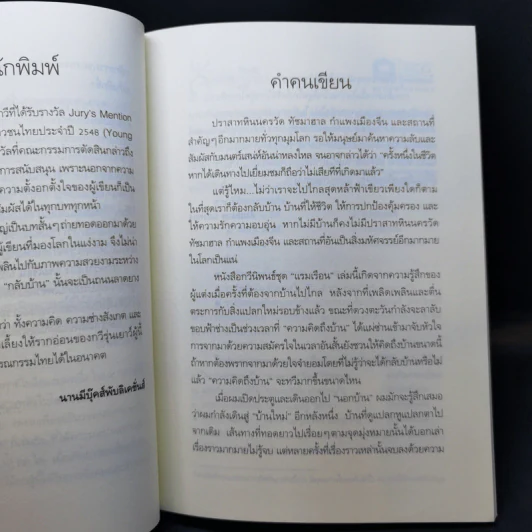 นักพิมพ์
วีที่ได้รับรางวัล Jury's Mention
าวชนไทยประจำปี 2548 (Young
วัลที่คณะกรรมการตัดสินกล่าวถึง
การสนับสนุน เพราะนอกจากความ
ความตั้งอกตั้งใจของผู้เขียนก็เป็น
ัมผัสได้ในทุกบททุกหน้า
ญ่เป็นบทสั้นๆ ถ่ายทอดออกมาด้วย
ผู้เขียนที่มองโลกในแง่งาม จึงไม่น่า
พลินไปกับภาพความสวยงามระหว่าง
"กลับบ้าน" นั้นจะเป็นถนนลาดยาง
ว่า ทั้งความคิด ความช่างสังเกต และ
เลี้ยงให้รากอ่อนของกวีรุ่นเยาว์ผู้นี้
รณกรรมไทยได้ในอนาคต
นานมีบุ๊คส์พับลิเคชั่นส์
คำคนเขียน
ปราสาทหินนครวัด ทัชมาฮาล กำแพงเมืองจีน และสถานที่
สำคัญๆ อีกมากมายทั่วทุกมุมโลก รอให้มนุษย์มาค้นหาความลับและ
สัมผัสกับมนตร์เสน่ห์อันน่าหลงใหล จนอาจกล่าวได้ว่า "ครั้งหนึ่งในชีวิต
หากได้เดินทางไปเยี่ยมชมก็ถือว่าไม่เสียทีที่เกิดมาแล้ว"
แต่รู้ไหม...ไม่ว่าเราจะไปไกลสุดหล้าฟ้าเขียวเพียงใดก็ตาม
ในที่สุดเราก็ต้องกลับบ้าน บ้านที่ให้ชีวิต ให้การปกป้องคุ้มครอง และ
ให้ความรักความอบอุ่น หากไม่มีบ้านก็คงไม่มีปราสาทหินนครวัด
ทัชมาฮาล กำแพงเมืองจีน และสถานที่อันเป็นสิ่งมหัศจรรย์อีกมากมาย
ในโลกเป็นแน่
หนังสือกวีนิพนธ์ชุด "แรมเรือน" เล่มนี้เกิดจากความรู้สึกของ
ผู้แต่งเมื่อครั้งที่ต้องจากบ้านไปไกล หลังจากที่เพลิดเพลินและตื่น
ตระการกับสิ่งแปลกใหม่รอบข้างแล้ว ขณะที่ดวงตะวันกำลังจะลาลับ
ขอบฟ้าช่างเป็นช่วงเวลาที่ "ความคิดถึงบ้าน" ได้แผ่ซ่านเข้ามาจับหัวใจ
การจากมาด้วยความสมัครใจในเวลาอันสั้นยังชวนให้คิดถึงบ้านขนาดนี้
ถ้าหากต้องพรากจากมาด้วยใจจำยอมโดยที่ไม่รู้ว่าจะได้กลับบ้านหรือไม่
แล้ว "ความคิดถึงบ้าน" จะทวีมากขึ้นขนาดไหน
เมื่อผมเปิดประตูและเดินออกไป "นอกบ้าน" ผมมักจะรู้สึกเสมอ
ว่าผมกำลังเดินสู่ "บ้านใหม่" อีกหลังหนึ่ง บ้านที่ดูแปลกหูแปลกตาไป
จากเดิม เส้นทางที่ทอดยาวไปเรื่อยๆ ตามจุดมุ่งหมายนั้นได้บอกเล่า
เรื่องราวมากมายไม่รู้จบ แต่หลายครั้งที่เรื่องราวเหล่านั้นจบลงด้วยความ